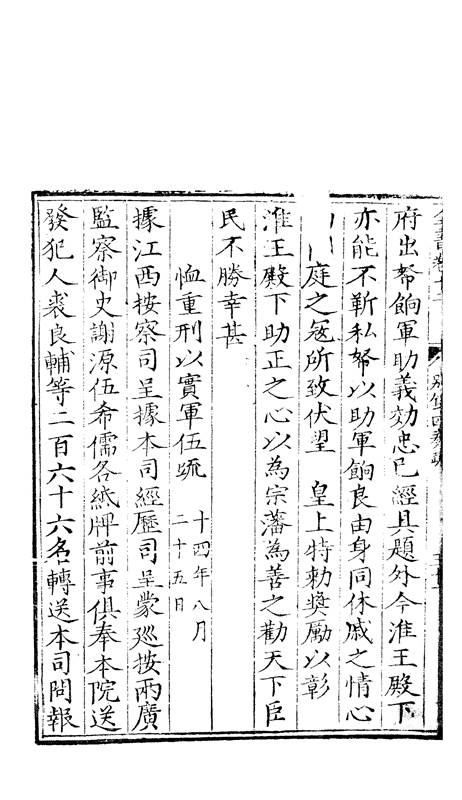 府出帑餉軍助義効忠已經具題外今淮王殿下
亦能不靳私帑以助軍餉良由身同休戚之情心
庭之冦所致伏望　皇上特勅奬勵以彰
淮王殿下助正之心以為宗藩為善之勸天下臣
民不勝幸甚
恤重刑以實軍伍疏　十四年八月二十五日
據江西按察司呈據本司經歷司呈蒙廵按兩廣
監察御史謝源伍希儒各紙牌前事俱奉本院送
發犯人裘良輔等二百六十六名轉送本司問報